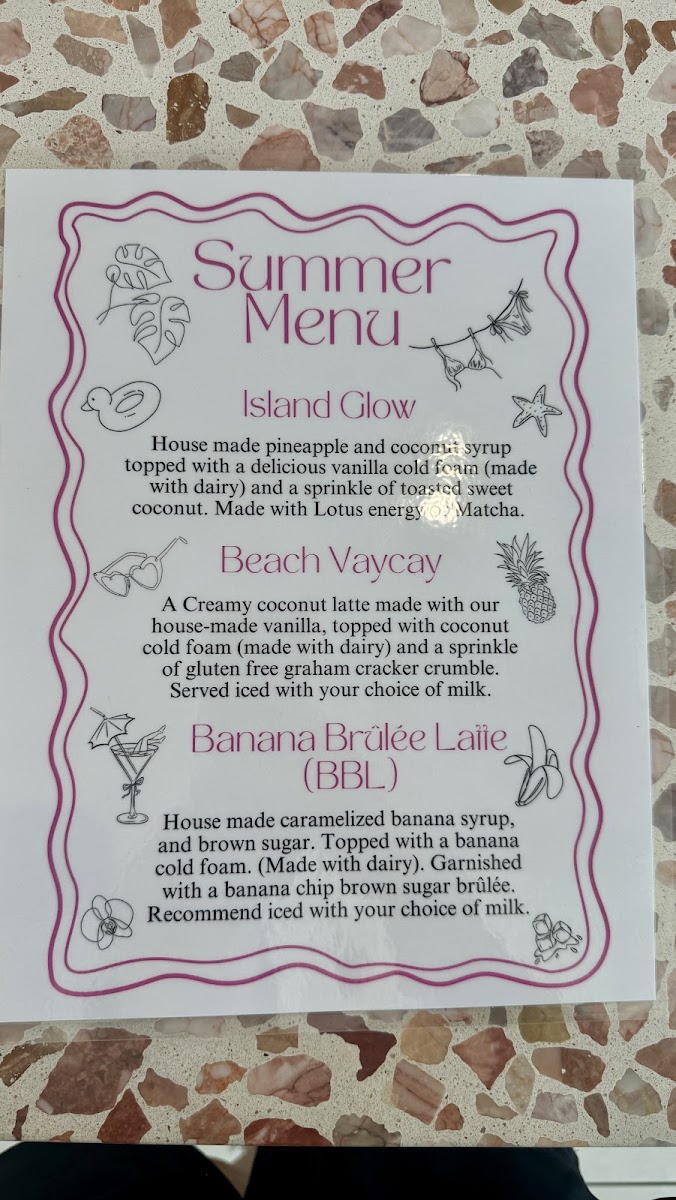 Summer
Menu
Island Glow
House made pineapple and coconut syrup
topped with a delicious vanilla cold foam (made
with dairy) and a sprinkle of toasted sweet
coconut. Made with Lotus energy or Matcha.
Beach Vaycay
A Creamy coconut latte made with our
house-made vanilla, topped with coconut
cold foam (made with dairy) and a sprinkle
of gluten free graham cracker crumble.
Served iced with your choice of milk.
Banana Brûlée Latte
(BBL)
House made caramelized banana syrup,
and brown sugar. Topped with a banana
cold foam. (Made with dairy). Garnished
with a banana chip brown sugar brûlée.
Recommend iced with your choice of milk.